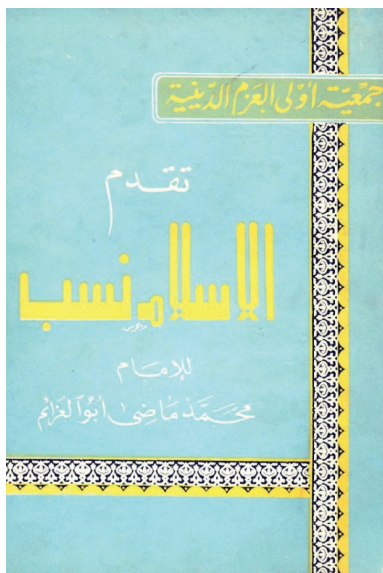 جمعية أولى العزم الدينية
تقدم
الإسلام نسب
للإمام
محمد ماضى أبو العزائم